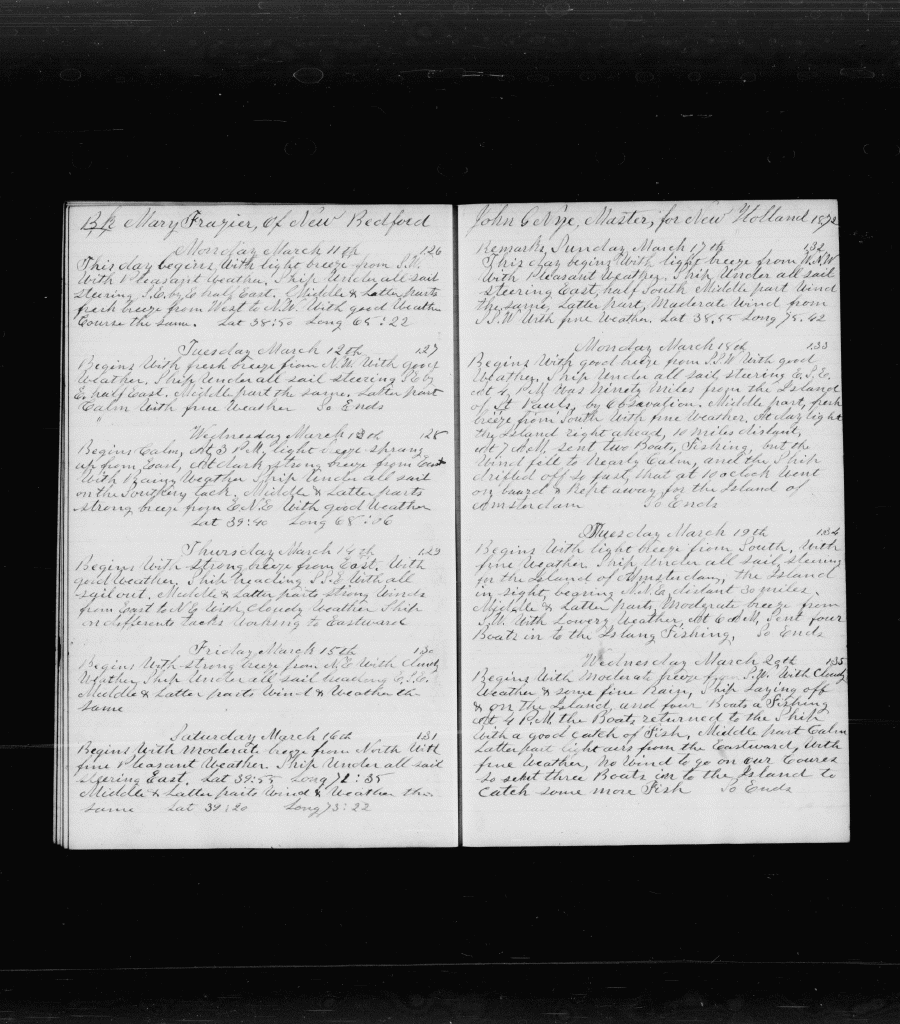 B/k Mary Frazier, Of New Bedford
Monday March 11th 126
This day begins With light breeze from S.W.
With Pleasant Weather, Ship Under all sail
steering S.E. by E half East. Middle & Latter parts
fresh breeze from West to N.W. With good Weather
Course the same. Lat 38:50 Long 65:22
Tuesday March 12th 127
Begins With fresh breeze from N.W. With good
Weather. Ship Under all sail steering S.E by
E. half East. Middle part the same, Latter part
Calm With fine Weather So Ends
Wednesday March 13th 128
Begins Calm, At 3 P.M, light breeze sprang
up from East, At dark strong breeze from East
With Rainy Weather Ship Under all sail
on the Southern tack. Middle & Latter parts
strong breeze from E.N.E With good Weather
Lat 39:40 Long 68:06
Thursday March 14th 129
Begins With strong breeze from East. With
good Weather. Ship heading S.S.E With all
sail out. Middle & Latter parts strong Winds
from East to N.E With Cloudy Weather Ship
on differents tacks Working to Eastward
Friday March 15th 130
Begins With strong breeze from N.E With Cloudy
Weather, Ship Under all sail heading E.S.E.
Middle & Latter parts Wind & Weather the
same
Saturday March 16th 131
Begins With Moderate breeze from North With
fine Pleasant Weather. Ship Under all sail
steering East. Lat 39:55 Long 72:35
Middle & Latter parts Wind & Weather the
same Lat 39:20 Long 73:22
John C Nye, Master, for New Holland 1872
Remarks, Sunday March 17th 132
This day begins With light breeze from W.N.W
With Pleasant Weather. Ship Under all sail
steering East, half South Middle part Wind
the same, Latter part, Maderate Wind from
S.S.W With fine Weather. Lat 38.55 Long 75.42
Monday March 18th 133
Begins With good breeze from S.S.W With good
Weather, Ship Under all sail, steering E.S.E.
At 4 P.M Was Ninety Miles from the Island
of St Pauls, by Obsavation. Middle part, fresh
breeze from South With fine Weather, At day light
the Island right ahead, 10 miles distant,
At 7 A.M. sent two Boats, Fishing, but the
Wind fell to Nearly Calm, and the Ship
drifted off so fast, that at 10 oclock Went
on board & Kept away for the Island of
Amsterdam So Ends
Tuesday March 19th 134
Begins With light breeze from South, With
fine Weather. Ship Under all sail, steering
for the Island of Amsterdam, the Island
in sight, bearing N.N.E, distant 30 miles.
Middle & Latter part, Moderate breeze from
S.W. With Lowery Weather, At 6 A.M, Sent four
Boats in to the Island Fishing, So Ends
Wednesday March 20th 135
Begins With Moderate breeze from S.W. With Cloudy
Weather & some fine Rain, Ship Laying off
& on the Island, and four Boats a Fishing
At 4 P.M the Boats returned to the Ship
With a good Catch of Fish, Middle part Calm
Latter part light aers from the Eastward, With
fine Weather, No Wind to go on our Coures
so sent three Boats in to the Island to
Catch some more Fish So Ends